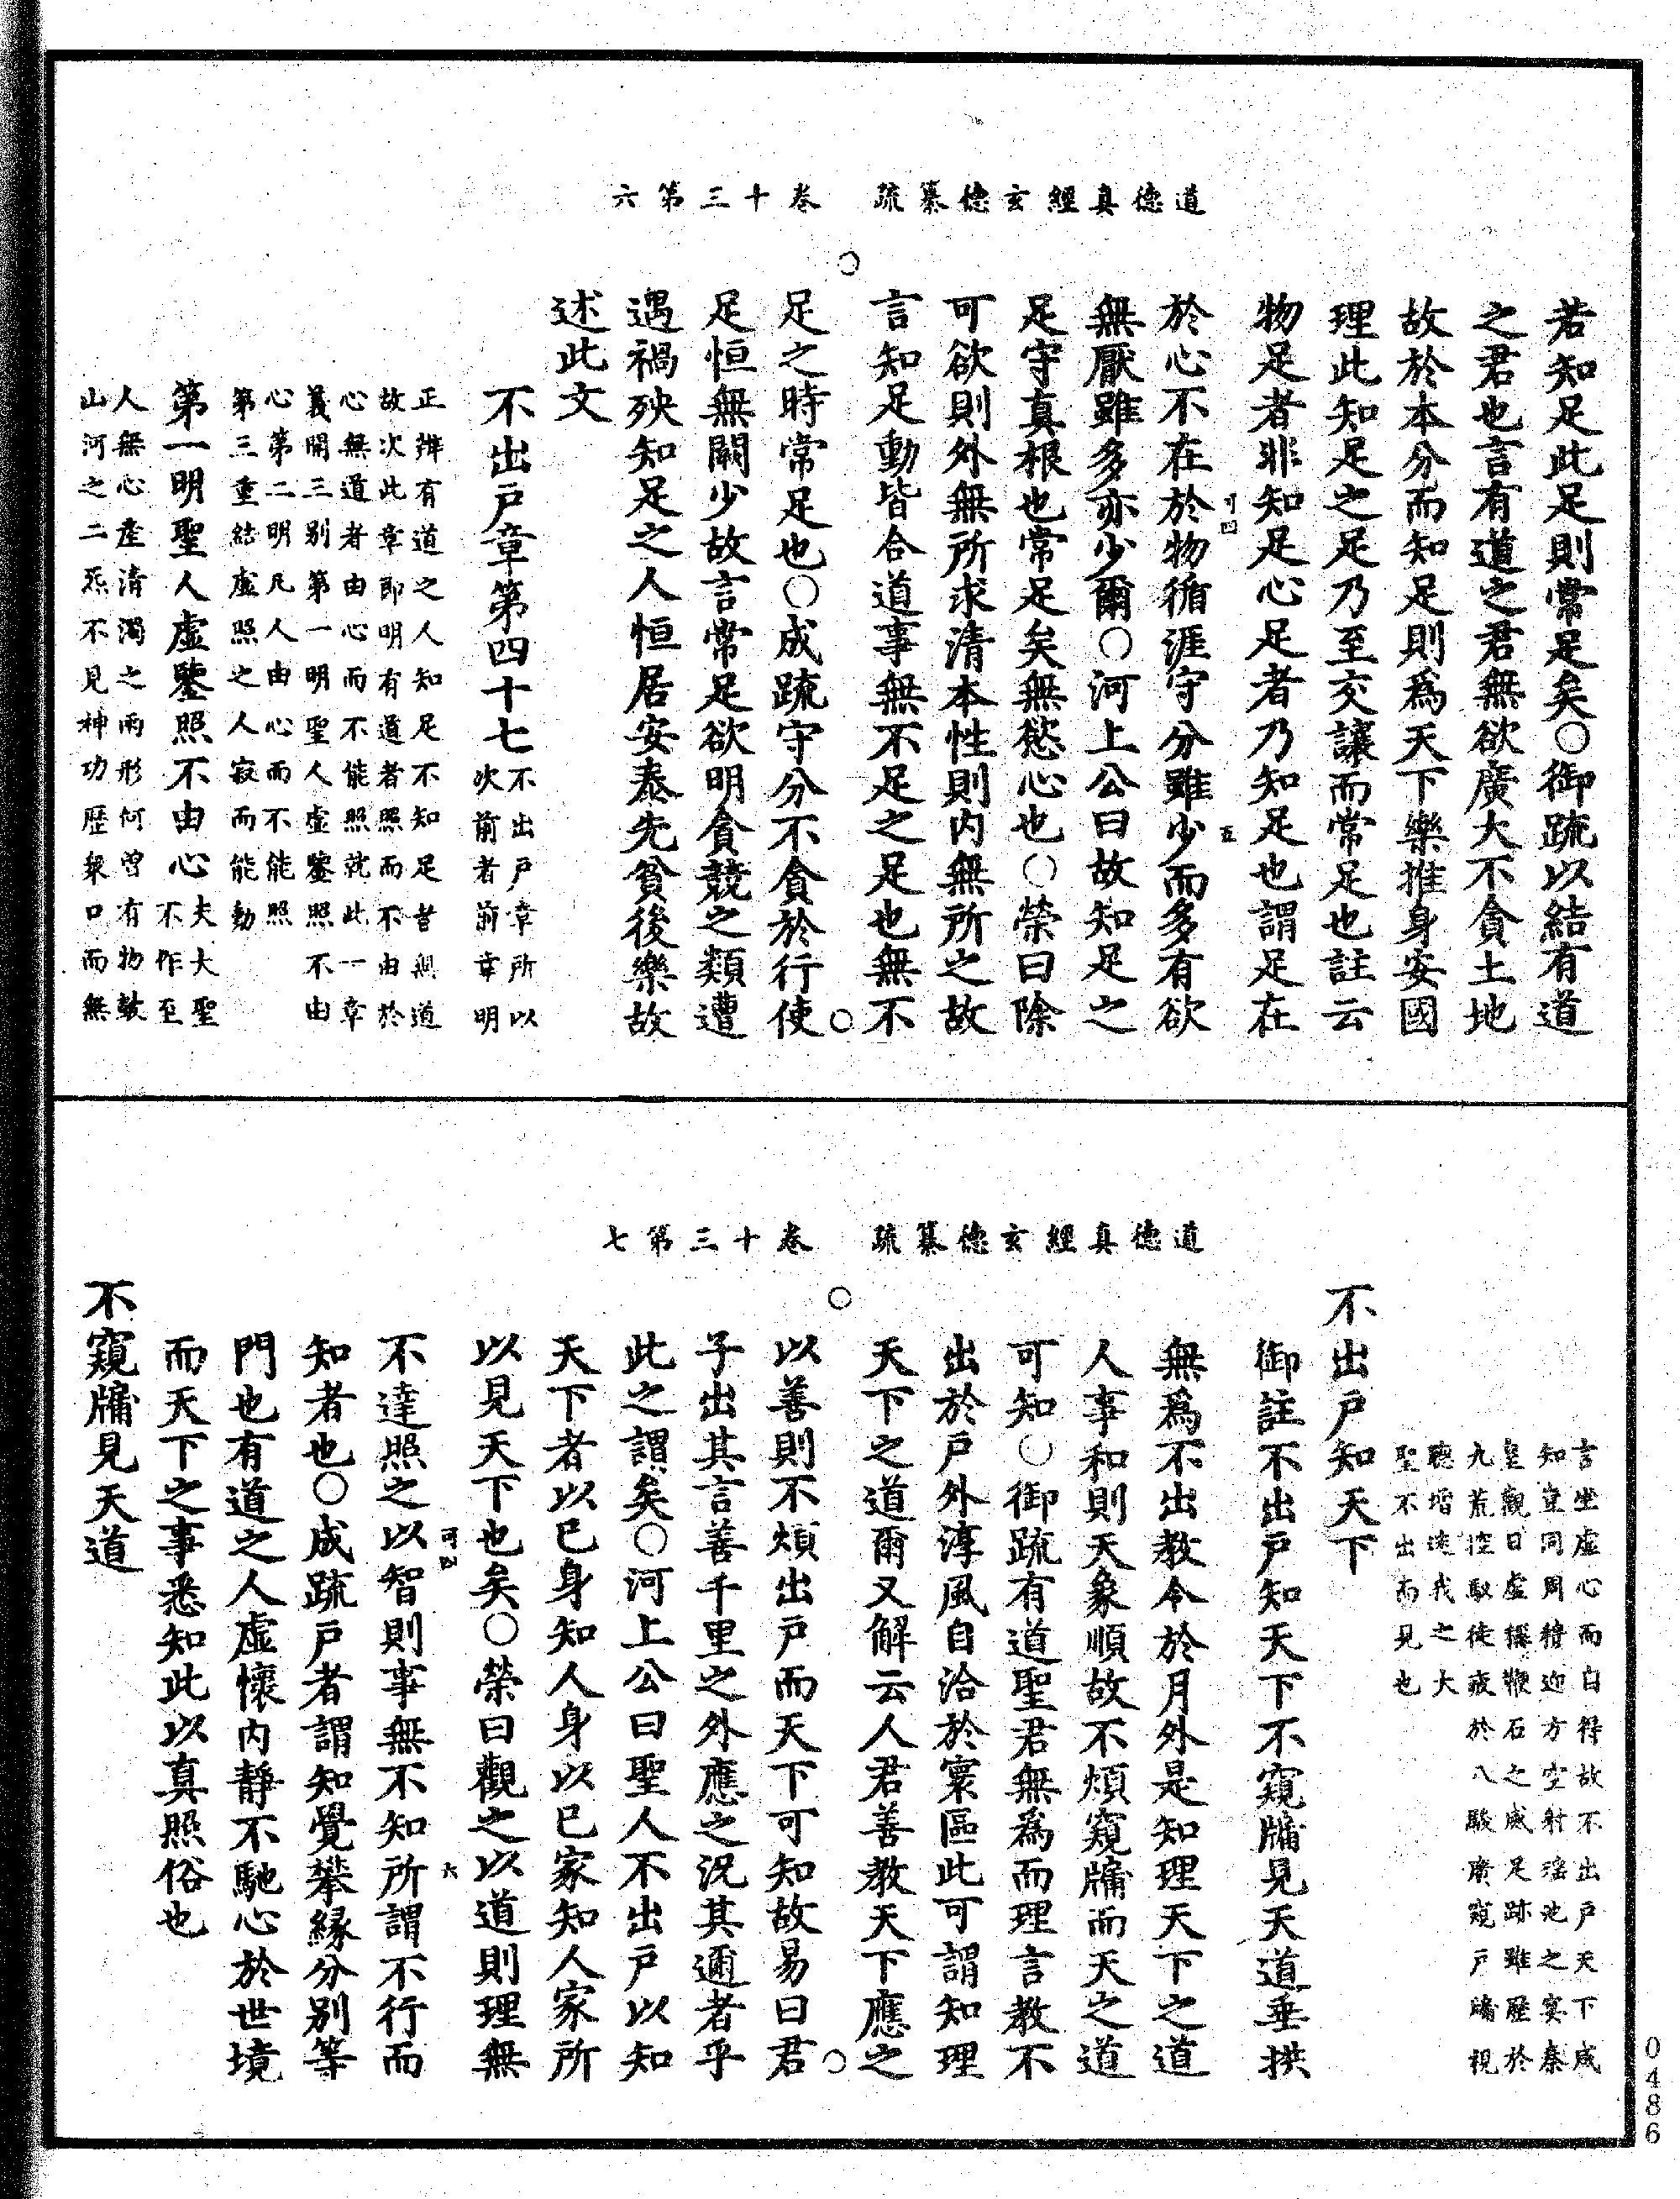 道德真經玄德纂疏　卷十三第六
若知足此足則常足矣○御疏以結有道
之君也言有道之君無欲廣大不貪土地
故於本分而知足則為天下樂推身安國
理此知足之足乃至交讓而常足也註云
物足者非知足心足者乃知足也謂足在
可四
五
於心不在於物循涯守分雖少而多有欲
無厭雖多亦少爾○河上公曰故知足之
足守真根也常足矣無慾心也○榮曰除
可欲則外無所求清本性則內無所之故
言知足動皆合道事無不足之足也無不
足之時常足也○成疏守分不貪於行使
足恒無闕少故言常足欲明貪競之類遭
遇禍殃知足之人恒居安泰先貧後樂故
述此文
不出戶章第四十七不出戶章所以
次前者前章明
正辯有道之人知足不知足者無道
故次此章即明有道者照而不由於
心無道者由心而不能照就此一章
義開三別第一明聖人虛鑒照不由
心第二明凡人由心而不能照
第三重結虛照之人寂而能動
第一明聖人虛鑒照不由心夫大聖
不作至
人無心產清濁之兩形何曾有物散
山河之二炁不見神功歷衆口而無
道德真經玄德纂疏　卷十三第七
言坐虛心而自得故不出戶天下咸
知豈同周穆迎方空射瑤池之宴秦
皇觀日虛橫鞭石之威足跡雖歷於
九荒控馭徒疲於八駿廣窺戶牖視
聽增迷我之大
聖不出而見也
不出戶知天下
御註不出戶知天下不窺牖見天道垂拱
無為不出教令於月外是知理天下之道
人事和則天象順故不煩窺牖而天之道
可知○御疏有道聖君無為而理言教不
出於戶外淳風自洽於寰區此可謂知理
天下之道爾又解云人君善教天下應之
以善則不煩出戶而天下可知故易曰君
子出其言善千里之外應之況其邇者乎
此之謂矣○河上公曰聖人不出戶以知
天下者以已身知人身以已家知人家所
以見天下也矣○榮曰觀之以道則理無
可四
六
不達照之以智則事無不知所謂不行而
知者也○成疏戶者謂知覺攀緣分別等
門也有道之人虛懷內靜不馳心於世境
而天下之事悉知此以真照俗也
不窺牖見天道
0486